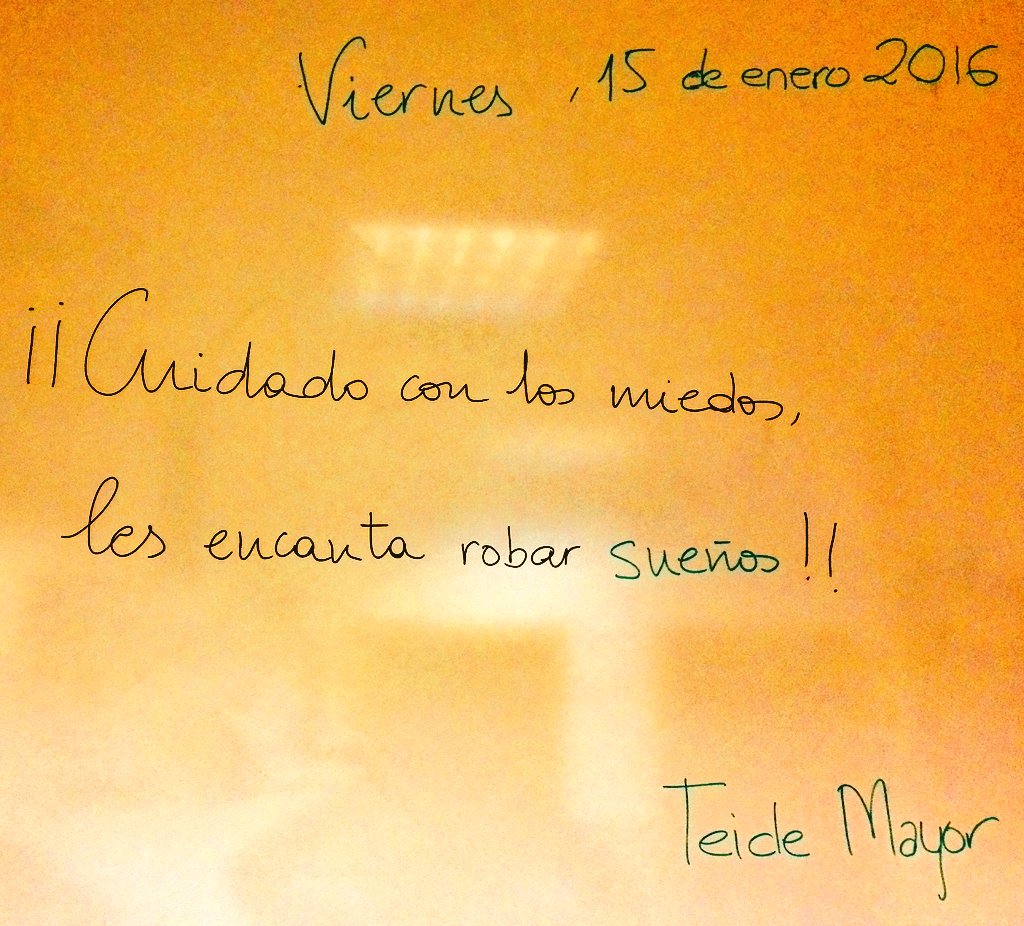 Viernes, 15 de enero 2016
¡¡Cuidado con los miedos,
les encanta robar sueños!!
Teide Mayor